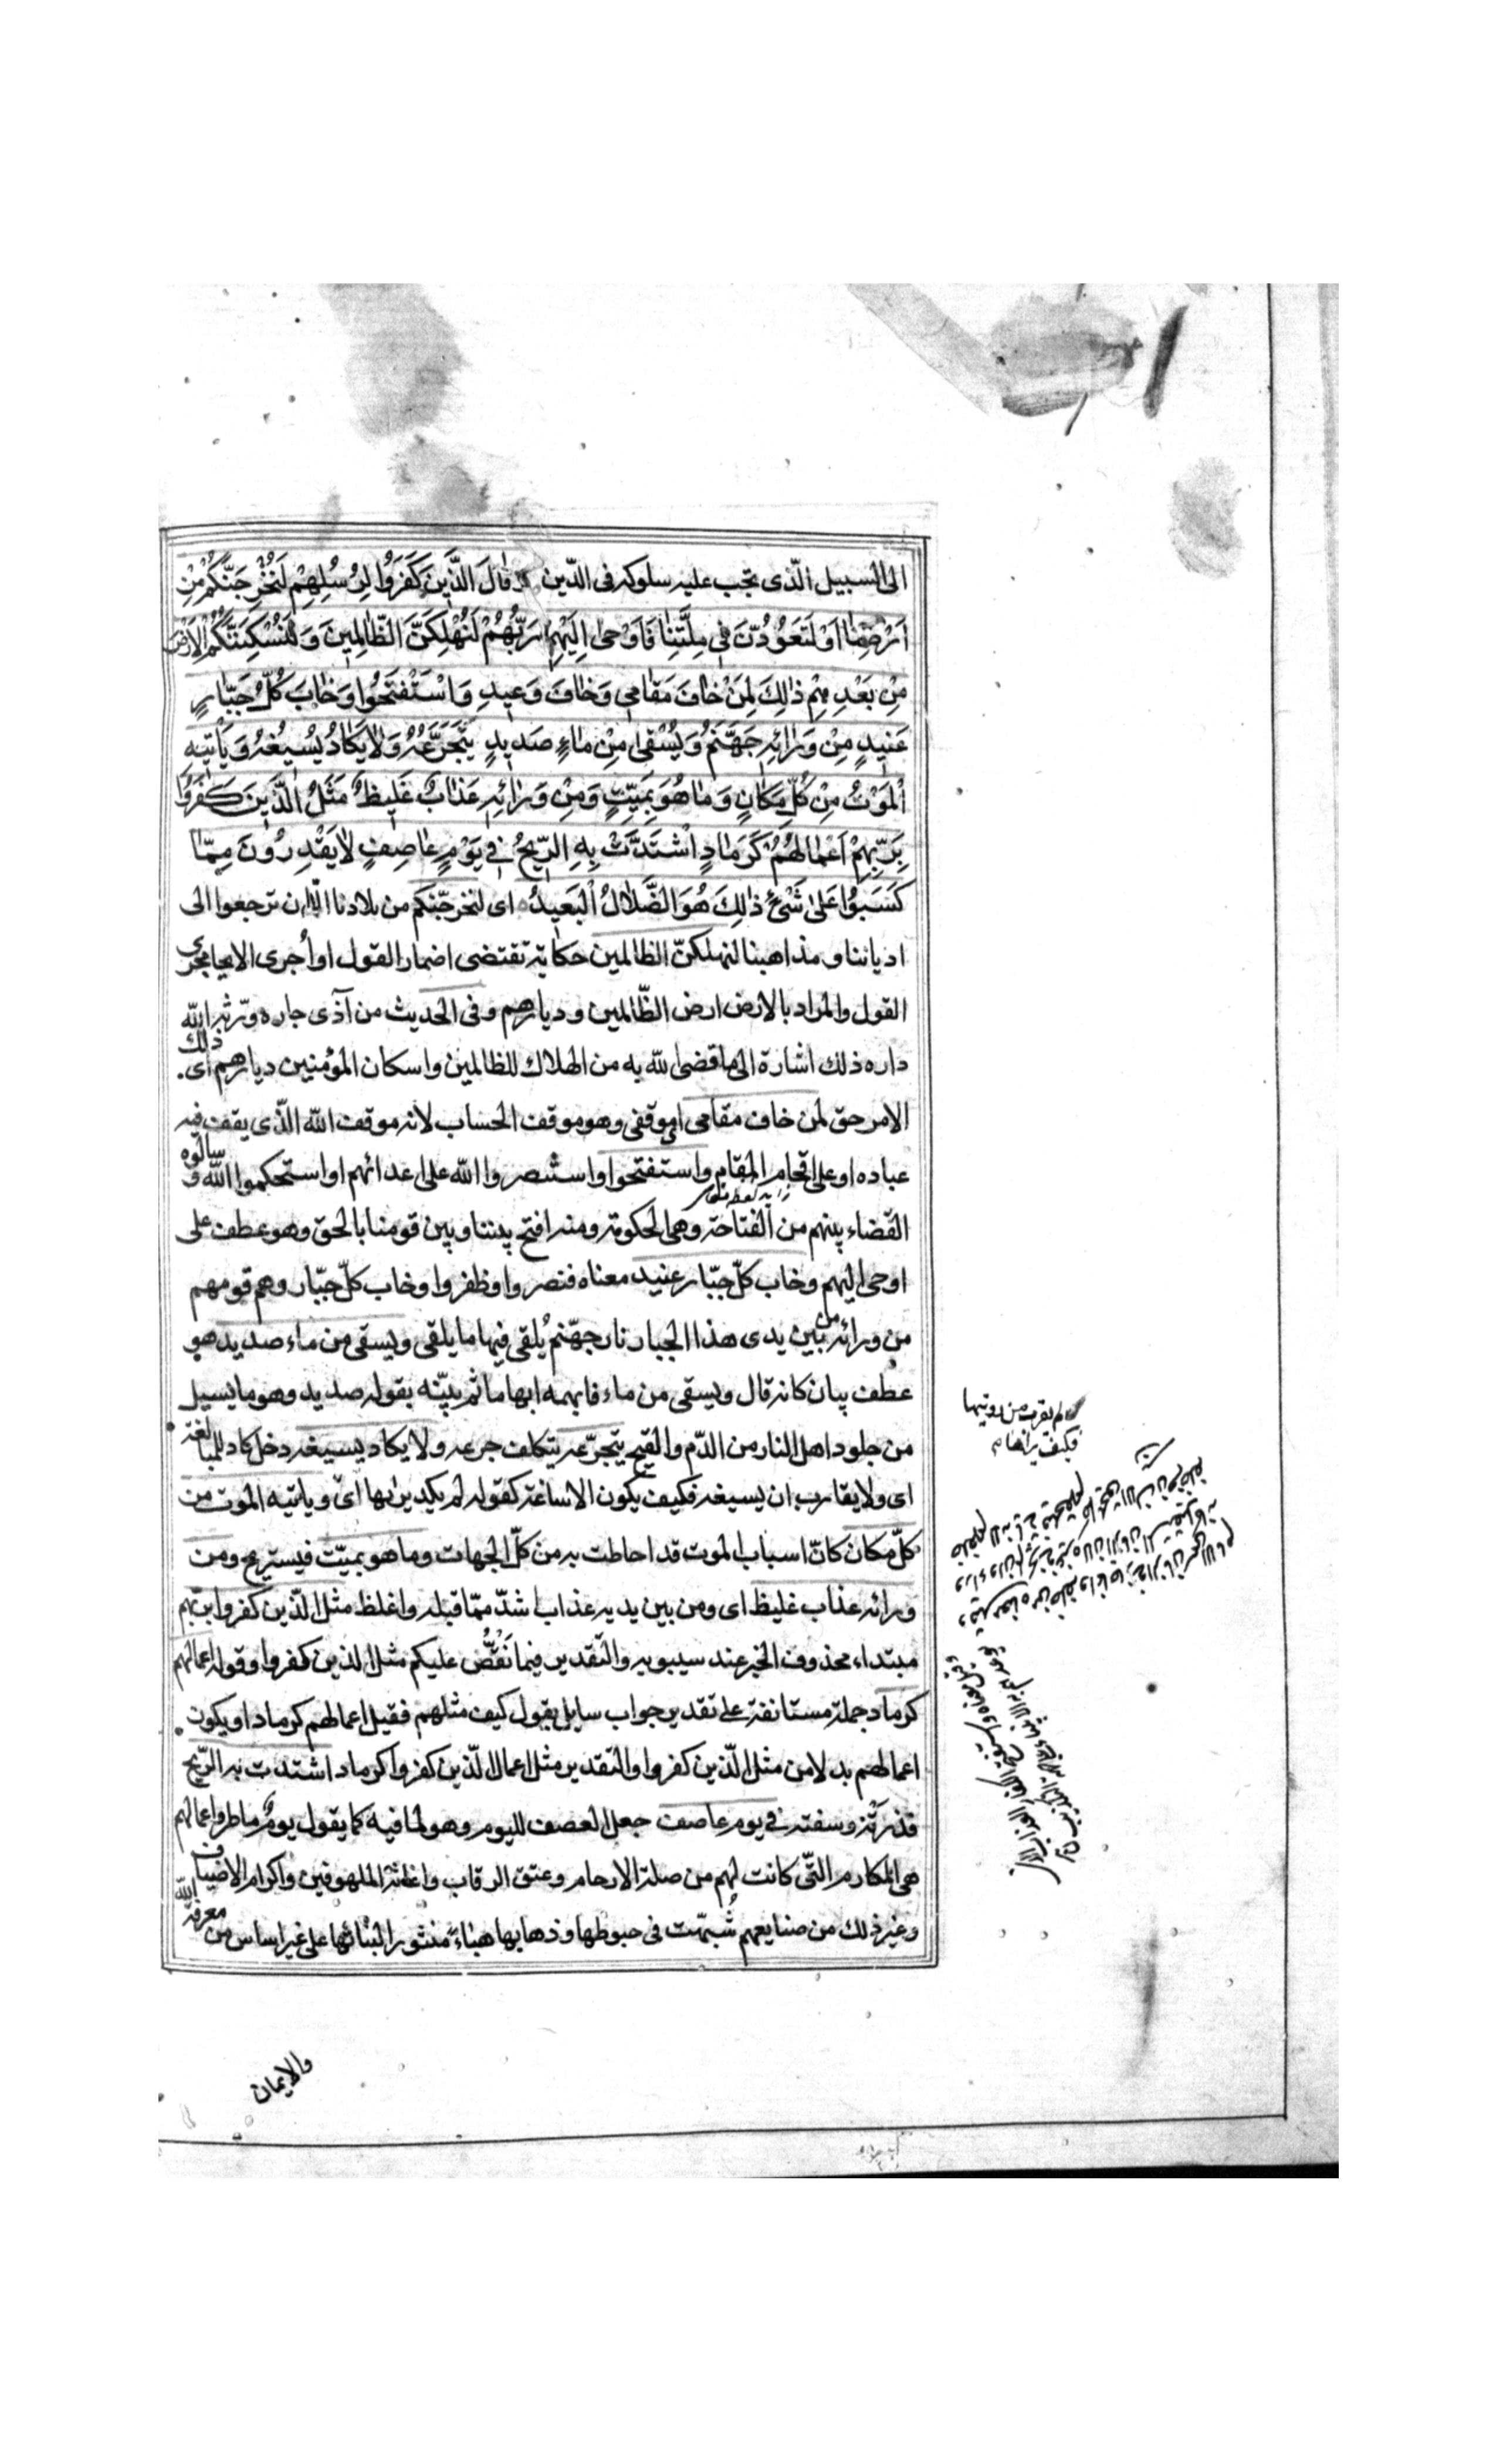 الى السبيل الّذى يجب عليه سلوكه فى الدّين وَقَالَ الَّذِينَ كَفَرُوا لِرُسُلِهِمْ لَنُخْرِجَنَّكُمْ مِنْ
اَرْضِنَا اَوْ لَتَعُودُنَّ فِي مِلَّتِنَا فَاَوْحى اِلَيْهِمْ رَبُّهُمْ لَنُهْلِكَنَّ الظَّالِمِينَ وَلَنُسْكِنَنَّكُمُ الْاَرْضَ
مِنْ بَعْدِهِمْ ذٰلِكَ لِمَنْ خَافَ مَقَامِي وَخَافَ وَعِيدِ وَاسْتَفْتَحُوا وَخَابَ كُلُّ جَبَّارٍ
عَنِيدٍ مِنْ وَرَائِهِ جَهَنَّمُ وَيُسْقى مِنْ مَاءٍ صَدِيدٍ يَتَجَرَّعُهُ وَلَا يَكَادُ يُسِيغُهُ وَيَأْتِيهِ
الْمَوْتُ مِنْ كُلِّ مَكَانٍ وَمَا هُوَ بِمَيِّتٍ وَمِنْ وَرَائِهِ عَذَابٌ غَلِيظٌ مَثَلُ الَّذِينَ كَفَرُوا
بِرَبِّهِمْ اَعْمَالُهُمْ كَرَمَادٍ اشْتَدَّتْ بِهِ الرِّيحُ فِي يَوْمٍ عَاصِفٍ لَا يَقْدِرُونَ مِمَّا
كَسَبُوا عَلى شَيْءٍ ذٰلِكَ هُوَ الضَّلَالُ الْبَعِيدُ اى لنخرجنّكم من بلادنا الّا ان ترجعوا الى
ادياننا ومذاهبنا لنهلكنّ الظالمين حكاية تقتضى اضمار القول او اُجرى الايحا مجرى
القول والمراد بالارض ارض الظّالمين وديارهم وفى الحديث من آذى جاره ورّثه الله
داره ذلك اشارة الى ما قضى الله به من اهلاك الظالمين واسكان المؤمنين ديارهم اى ذلك
الامر حق لمن خاف مقامى اى موقفى وهو موقف الحساب لانه موقف الله الّذى يقف فيه
عباده او على اقحام المقام واستفتحوا واستنصروا الله على اعدائهم او استحكموا الله وسالوه
القضاء بينهم من الفتاحة وهى الحكومة ومنه افتح بيننا وبين قومنا بالحق وهو عطف على
اوحى اليهم وخاب كلّ جبّار عنيد معناه فنصروا وظفروا وخاب كلّ جبّار وهم قومهم
من ورائه من بين يدى هذا الجبار نار جهّنم يُلقى فيها ما يلقى ويسقى من ماء صديد هو
عطف بيان كانه قال ويسقى من ماء فابهمه ابهاما ثم بيّنه بقوله صديد وهو ما يسيل
من جلود اهل النار من الدّم والقيح يتجرّعه يتكلف جرعه ولا يكاد يسيغه دخل كاد للمبالغة
اى ولا يقارب ان يسيغه فكيف يكون الاساغة كقوله لم يكد يراها اى وياتيه الموت من
كلّ مكان كانّ اسباب الموت قد احاطت به من كلّ الجهات وما هو بميّت فيستريح ومن
ورائه عذاب غليظ اى ومن بين يديه عذاب اشدّ ممّا قبله واغلظ مثل الّذين كفروا بربّهم
مبتداء محذوف الخبر عند سيبويه والتّقدير فيما نَقُصُّ عليكم مثل الذين كفروا وقوله اعمالهم
كرماد جملة مستانفة على تقدير جواب سايل يقول كيف مثلهم فقيل اعمالهم كرماد او يكون
اعمالهم بدلا من مثل الّذين كفروا والتّقدير مثل اعمال الّذين كفروا كرماد اشتدت به الرّيح
فذرته وسفته فى يوم عاصف جعل العصف لليوم وهو لما فيه كما يقول يومٌ ماطر واعمالهم
هى المكارم التّى كانت لهم من صلة الارحام وعتق الرقاب واغاثة الملهوفين واكرام الاضياف
وغير ذلك من صنايعهم شُبّهت فى حبوطها وذهابها هباءً منثورا لبنائها على غير اساس من معرفة الله
لم يقرب من رويتها
فكيف يراها
والايمان